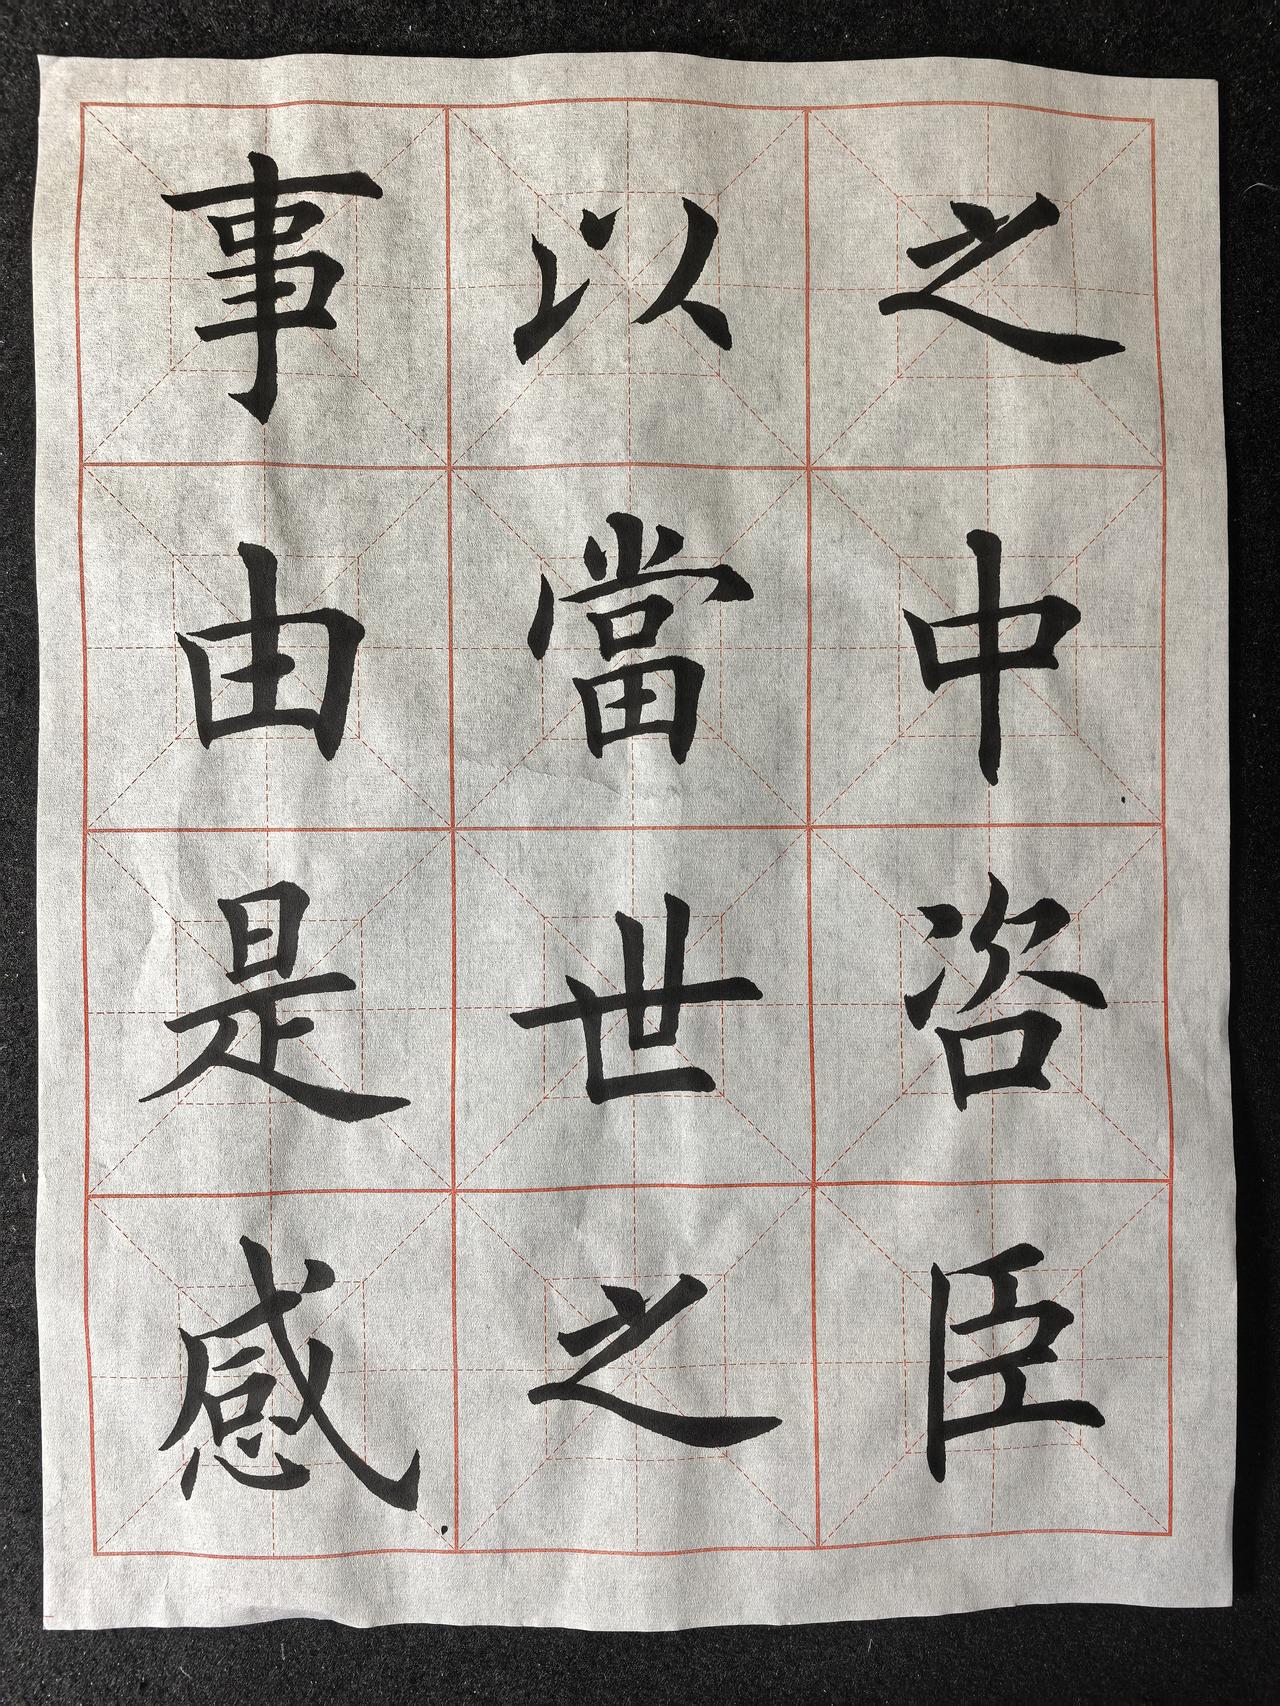 之中咨臣
以當世之
事由是感